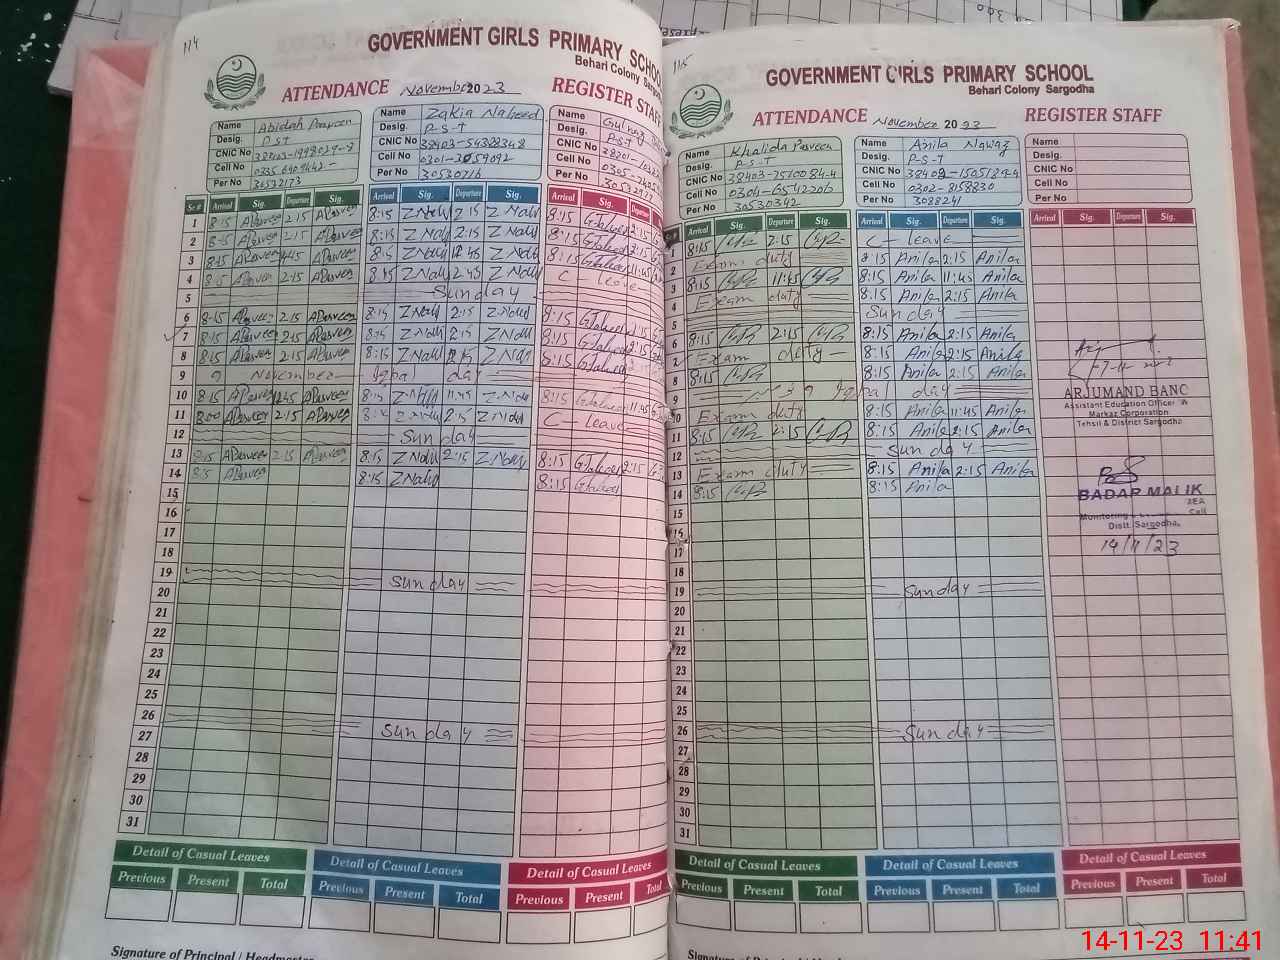 114
GOVERNMENT GIRLS PRIMARY SCHOOL
Behari Colony Sargodha
ATTENDANCE November 2023 REGISTER STAFF
Name Abidah Parveen
Desig. PST
CNIC No
Cell No
Per No 30532173
Name Zakia Naheed
Desig. P-S-T
CNIC No
Cell No 0301-3059092
Per No 30530716
Name Gulnaz
Desig. P-S-T
CNIC No
Cell No
Per No
Sr # Arrival Sig. Departure Sig. Arrival Sig. Departure Sig. Arrival Sig.
1 8:15 AParveen 2:15 AParveen 8:15 ZNahd 2:15 ZNahd 8:15 2:15
2 8:15 AParveen 2:15 AParveen 8:15 ZNahd 2:15 ZNahd 8:15 2:15
3 8:15 AParveen 11:45 AParveen 8:15 ZNahd 11:45 ZNahd 8:15 11:45
4 8:15 AParveen 2:15 AParveen 8:15 ZNahd 2:45 ZNahd C leave
5 Sunday
6 8:15 AParveen 2:15 AParveen 8:15 ZNahd 2:15 ZNahd 8:15 2:15
7 8:15 AParveen 2:15 AParveen 8:15 ZNahd 2:15 ZNahd 8:15 2:15
8 8:15 AParveen 2:15 AParveen 8:15 ZNahd 2:15 ZNahd 8:15
9 9 November Iqbal day
10 8:15 AParveen 11:45 AParveen 8:15 ZNahd 11:45 ZNahd 8:15 11:45
11 8:00 AParveen 2:15 AParveen 8:15 ZNahd 2:15 ZNahd C- leave
12 Sunday
13 8:15 AParveen 2:15 AParveen 8:15 ZNahd 2:15 ZNahd 8:15 2:15
14 8:15 AParveen 8:15 ZNahd 8:15
15
16
17
18
19 Sunday
20
21
22
23
24
25
26 Sunday
27
28
29
30
31
Detail of Casual Leaves Detail of Casual Leaves Detail of Casual Leaves
Previous Present Total Previous Present Total Previous Present Total
Signature of Principal / Headmaster
115
GOVERNMENT GIRLS PRIMARY SCHOOL
Behari Colony Sargodha
ATTENDANCE November 2023 REGISTER STAFF
Name Khalida Parveen
Desig. P-S-T
CNIC No 38403-2510084-4
Cell No 0304-6542206
Per No 30530342
Name Anila Nawaz
Desig. P-S-T
CNIC No
Cell No 0302-8158830
Per No 3088241
Name
Desig.
CNIC No
Cell No
Per No
Arrival Sig. Departure Sig. Arrival Sig. Departure Sig. Arrival Sig. Departure Sig.
1 8:15 2:15 C- leave
2 Exam duty 8:15 Anila 2:15 Anila
3 8:15 11:45 8:15 Anila 11:45 Anila
4 Exam duty 8:15 Anila 2:15 Anila
5 Sunday
6 8:15 2:15 8:15 Anila 2:15 Anila
7 Exam duty 8:15 Anila 2:15 Anila
8 8:15 8:15 Anila 2:15 Anila
9 Iqbal day
10 Exam duty 8:15 Anila 11:45 Anila
11 8:15 2:15 8:15 Anila 2:15 Anila
12 Sunday
13 Exam duty 8:15 Anila 2:15 Anila
14 8:15 8:15 Anila
15
16
17
18
19 Sunday
20
21
22
23
24
25
26 Sunday
27
28
29
30
31
ARJUMAND BANO
Assistant Education Officer W
Markaz Corporation
Tehsil & District Sargodha
BADAR MALIK
MEA
Monitoring Cell
Distt. Sargodha.
14/11/23
Detail of Casual Leaves Detail of Casual Leaves Detail of Casual Leaves
Previous Present Total Previous Present Total Previous Present Total
14-11-23 11:41